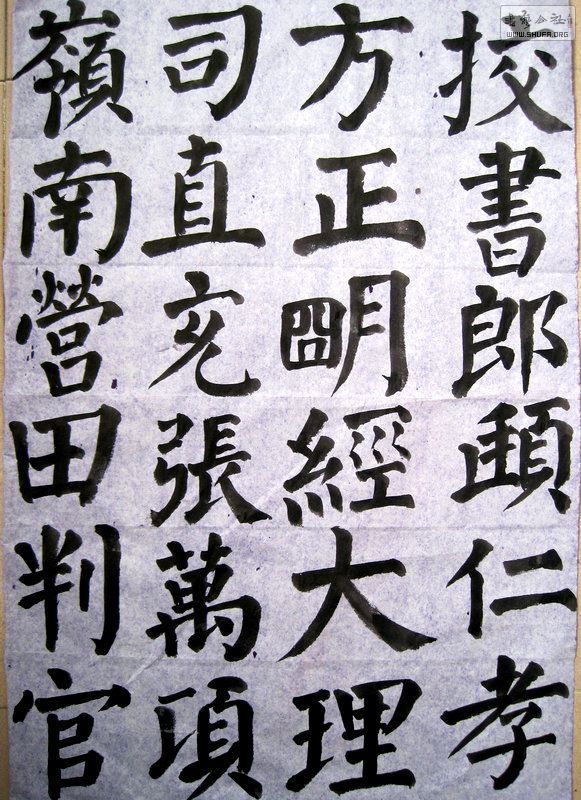 挍書郎頲仁孝
方正朙經大理
司直充張萬項
嶺南營田判官
公社
WWW.SHUFA.ORG